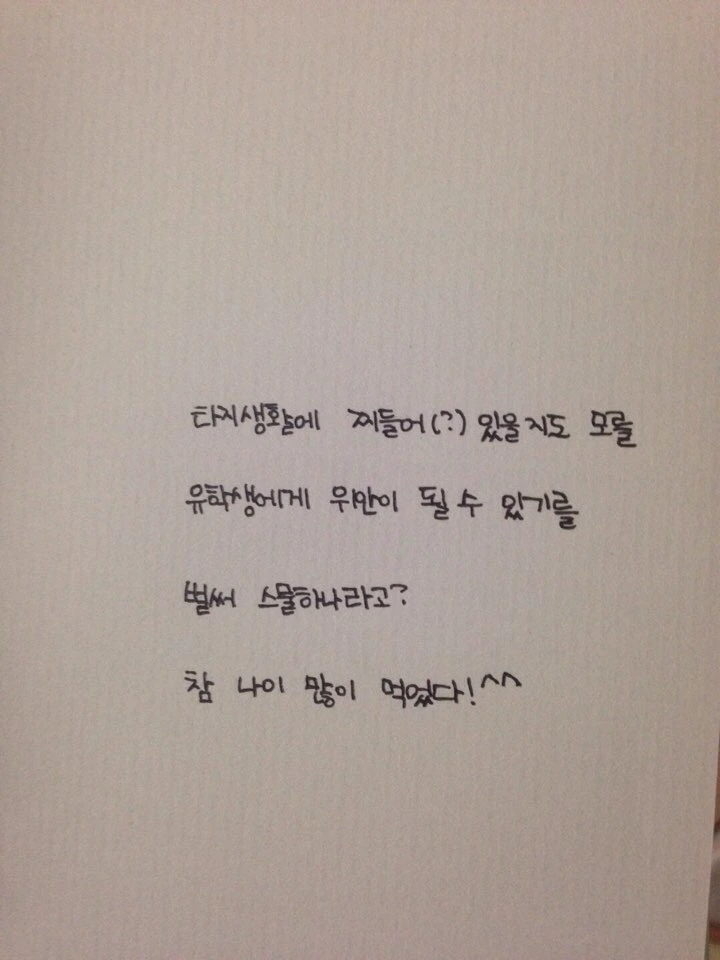 타지생활에 찌들어(?) 있을지도 모를
유학생에게 위안이 될 수 있기를
벌써 스물하나라고?
참 나이 많이 먹었다!^^